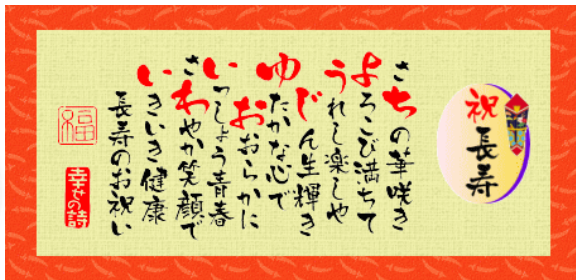 祝長寿
さちの華咲き
よろこび満ちて
うれし楽しや
じん生輝き
ゆたかな心で
おおらかに
いっしょう青春
さわやか笑顔で
いきいき健康
長寿のお祝い
福
幸せの詩